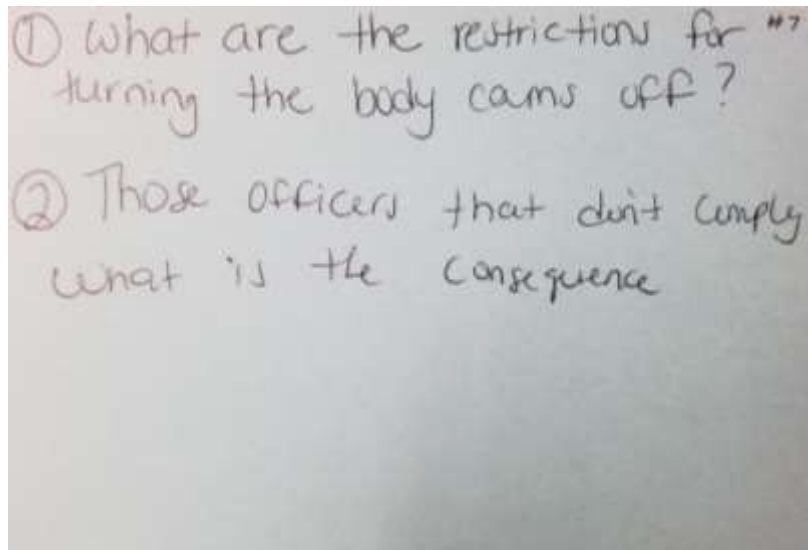 ① What are the restrictions for #7
turning the body cams off?
② Those officers that don't comply
what is the consequence